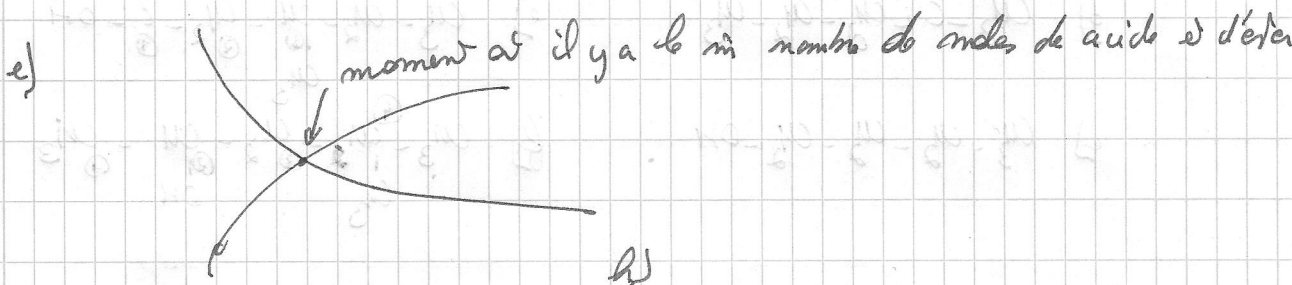 e)
moment où il y a le m̂ nombre de moles de acide et d'ester